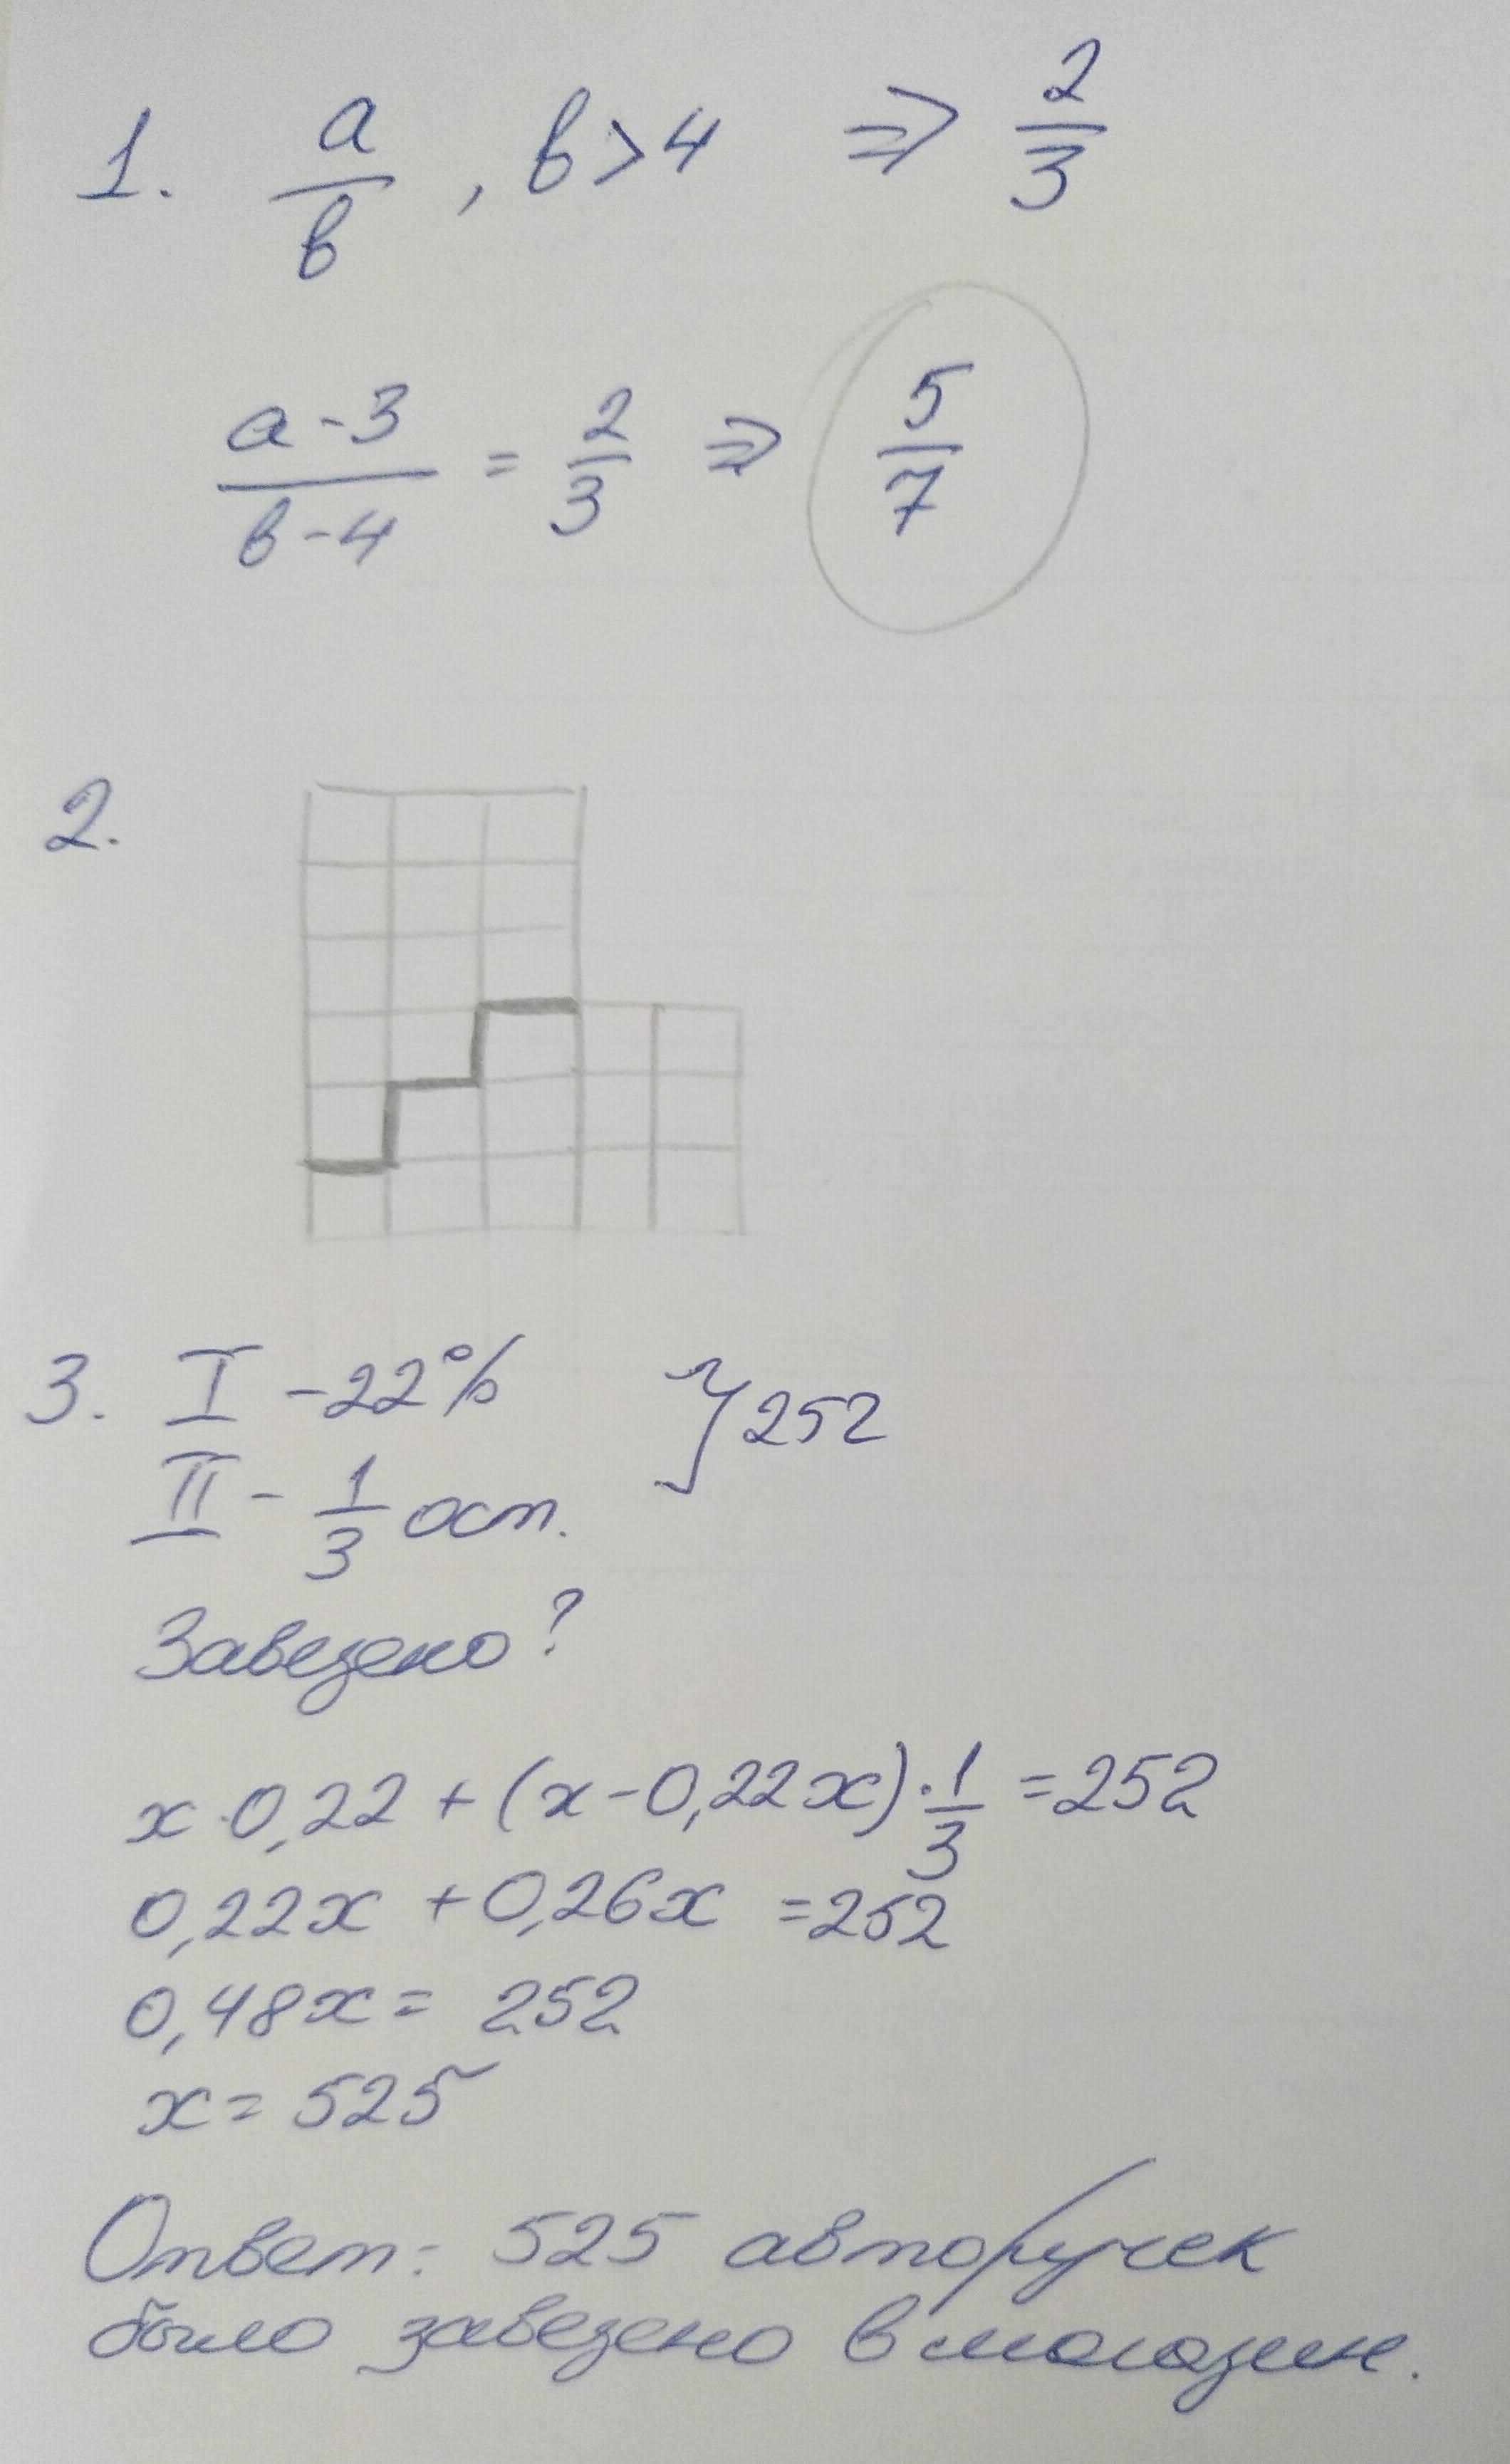 1. a/в , в>4 => 2/3
a-3/в-4 = 2/3 => 5/7
2.
3. I - 22% } 252
II - 1/3 ост.
Завезено?
x·0,22 + (x-0,22x)·1/3 = 252
0,22x + 0,26x = 252
0,48x = 252
x = 525
Ответ: 525 авторучек
было завезено в магазин.